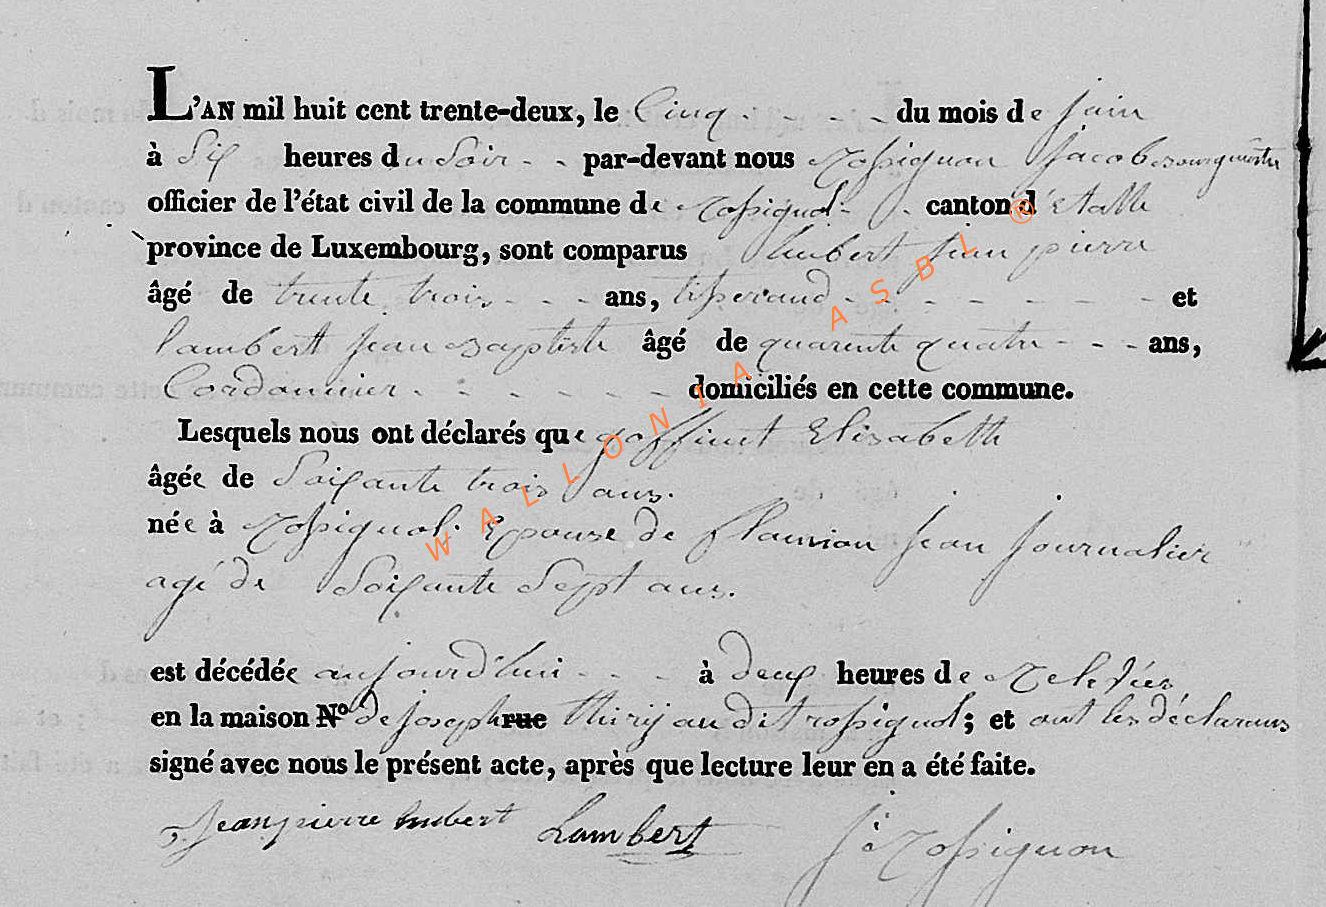 L'AN mil huit cent trente-deux, le Cinq - - - - du mois de juin
à Six heures du Soir - - par-devant nous Rossignon Jacob bourguemêstre
officier de l'état civil de la commune de Rossignol - - canton d'Etalle
province de Luxembourg, sont comparus hubert jean pierre
âgé de trente trois - - - ans, tisserand - - - - - - - et
lambert jean Baptiste âgé de quarente quatre - - - ans,
Cordonnier - - - - - - domiciliés en cette commune.
Lesquels nous ont déclarés que goffinet Elisabeth
âgée de Soixante trois ans.
née à Rossignol. Epouse de flamion jean journalier
agé de Soixante Sept ans.
est décédée aujourd'hui - - - à deux heures de Relevée
en la maison No de joseph rue thiry au dit rossignol; et ont les déclarans
signé avec nous le présent acte, après que lecture leur en a été faite.
Jean pierre hubert Lambert J: Rossignon
WALLONIA ASBL ®